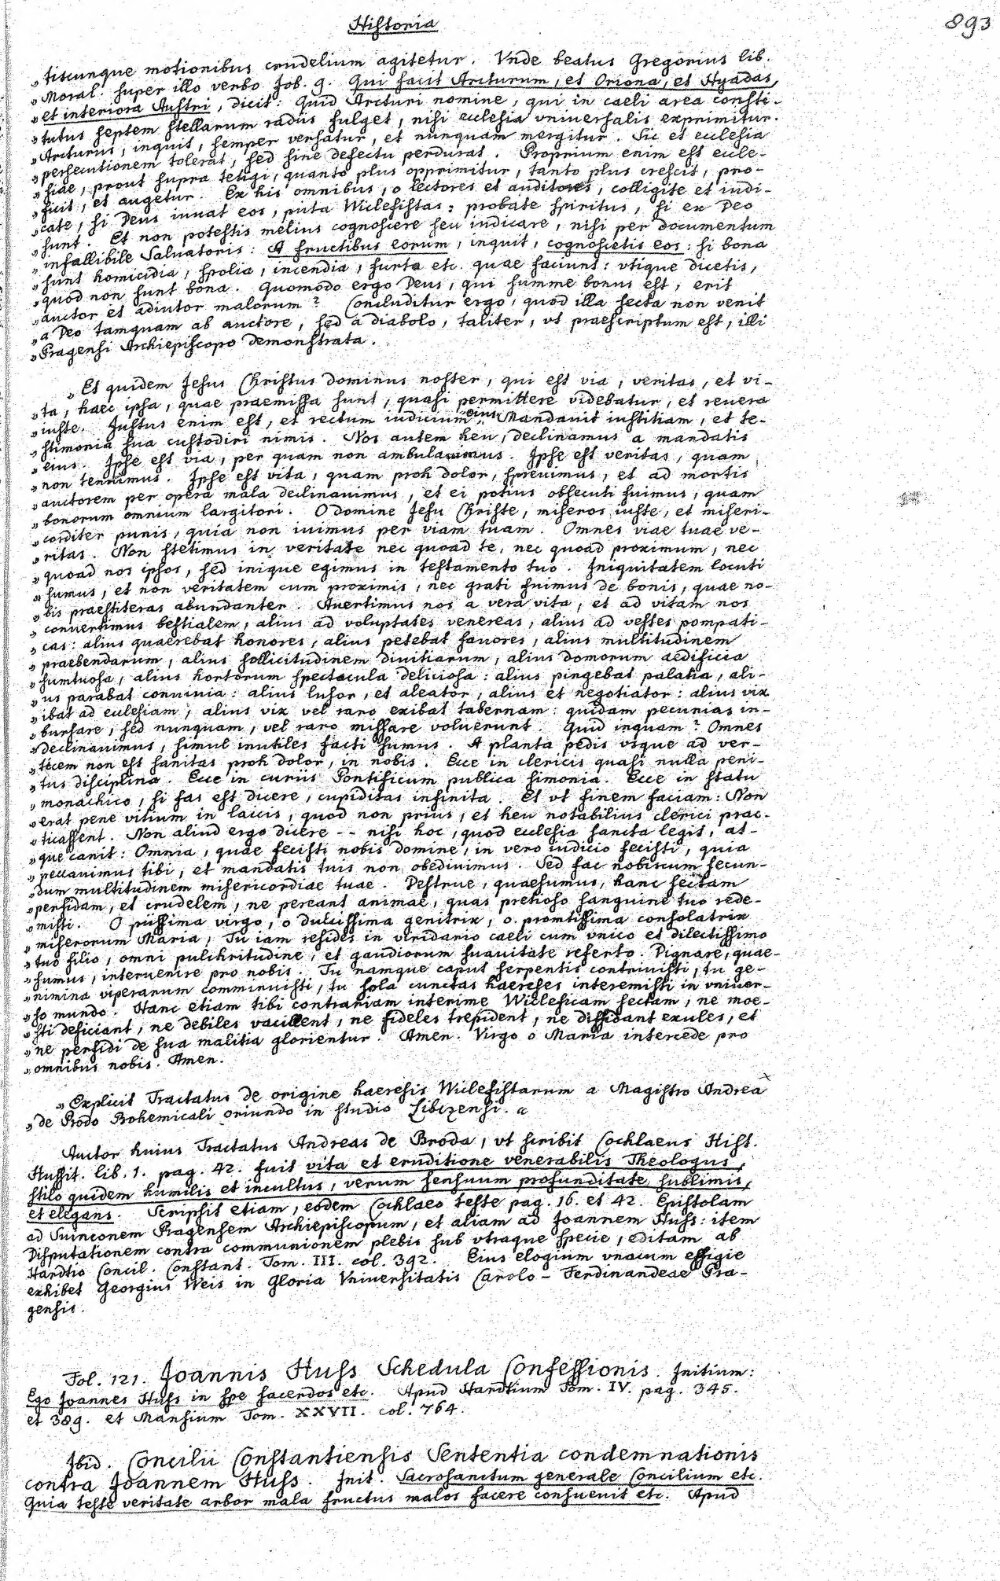 Historia
893
„tiscunque motionibus crudelium agitetur. Vnde beatus Gregorius lib.
„Moral. super illo verbo Job. 9. Qui facit Arcturum, et Oriona, et Hyadas,
„et interiora Austri, dicit: Quid Arcturi nomine, qui in caeli area consti-
„tutus septem stellarum radiis fulget, nisi ecclesia vniuersalis exprimitur.
„Arcturus, inquit, semper versatur, et nunquam mergitur. Sic et ecclesia
„persecutionem tolerat, sed sine defectu perdurat. Proprium enim est eccle-
„siae, prout supra tetigi, quanto plus opprimitur, tanto plus crescit, pro-
„ficit, et augetur. Ex his omnibus, o lectores et auditores, colligite et indi-
„cate, si Deus iuuat eos, puta Wiclefistas: probate spiritus, si ex Deo
„sunt. Et non potestis melius cognoscere seu iudicare, nisi per documentum
„infallibile Saluatoris: A fructibus eorum, inquit, cognoscetis eos: si bona
„sunt homicidia, spolia, incendia, furta etc. quae faciunt: vtique dicetis,
„quod non sunt bona. Quomodo ergo Deus, qui summe bonus est, erit
„auctor et adiutor malorum? Concluditur ergo, quod illa secta non venit
„a Deo tamquam ab auctore, sed a diabolo, taliter, vt praescriptum est, illi
„Pragensi Archiepiscopo demonstrata.
„Et quidem Jesus Christus dominus noster, qui est via, veritas, et vi-
„ta, haec ipsa, quae praemissa sunt, quasi permittere videbatur, et reuera
„iuste. Justus enim est, et rectum iudicium eius. Mandauit iustitiam, et te-
„stimonia sua custodiri nimis. Nos autem heu, declinamus a mandatis
„eius. Ipse est via, per quam non ambulauimus. Ipse est veritas, quam
„non tenuimus. Ipse est vita, quam proh dolor, spreuimus, et ad mortis
„auctorem per opera mala declinauimus, et ei potius obsecuti fuimus, quam
„bonorum omnium largitori. O domine Jesu Christe, miseros iuste, et miseri-
„corditer punis, quia non iuimus per viam tuam. Omnes viae tuae ve-
„ritas. Non stetimus in veritate nec quoad te, nec quoad proximum, nec
„quoad nos ipsos, sed inique egimus in testamento tuo. Iniquitatem locuti
„sumus, et non veritatem cum proximis, nec grati fuimus de bonis, quae no-
„bis praestiteras abundanter. Auertimus nos a vera vita, et ad vitam nos
„conuertimus bestialem, alius ad voluptates venereas, alius ad vestes pompati-
„cas: alius quaerebat honores, alius petebat fauores, alius multitudinem
„praebendarum, alius sollicitudinem diuitiarum, alius domorum aedificia
„sumtuosa, alius hortorum spectacula deliciosa: alius pingebat palatia, ali-
„us parabat conuiuia: alius lusor, et aleator, alius et negotiator: alius vix
„ibat ad ecclesiam, alius vix vel raro exibat tabernam: quidam pecunias in-
„bursare, sed nunquam, vel raro missare voluerunt. Quid inquam? Omnes
„declinauimus, simul inutiles facti sumus. A planta pedis vsque ad ver-
„ticem non est sanitas proh dolor, in nobis. Ecce in clericis quasi nulla peni-
„tus disciplina. Ecce in curiis Pontificum publica simonia. Ecce in statu
„monachico, si fas est dicere, cupiditas infinita. Et vt finem faciam: Non
„erat pene vitium in laicis, quod non prius, et heu notabilius clerici prac-
„ticassent. Non aliud ergo dicere -- nisi hoc, quod ecclesia sancta legit, at-
„que canit: Omnia, quae fecisti nobis domine, in vero iudicio fecisti, quia
„peccauimus tibi, et mandatis tuis non obediuimus. Sed fac nobiscum secun-
„dum multitudinem misericordiae tuae. Destrue, quaesumus, hanc sectam
„perfidam, et crudelem, ne pereant animae, quas pretioso sanguine tuo rede-
„misti. O piissima virgo, o dulcissima genitrix, o promtissima consolatrix
„miserorum Maria, Tu iam resides in viridario caeli cum vnico et dilectissimo
„tuo filio, omni pulchritudine, et gaudiorum suauitate referto. Dignare, quae-
„sumus, interuenire pro nobis. Tu namque caput serpentis contriuisti, tu ge-
„nimina viperarum comminuisti, tu sola cunctas haereses interemisti in vniuer-
„so mundo. Hanc etiam tibi contrariam interime Wicleficam sectam, ne moe-
„sti deficiant, ne debiles vacillent, ne fideles trepident, ne diffidant exules, et
„ne perfidi de sua malitia glorientur. Amen. Virgo o Maria intercede pro
„omnibus nobis. Amen.
„Explicit Tractatus de origine haeresis Wiclefistarum a Magistro Andrea
„de Brodo Bohemicali oriundo in studio Libczensi.
Auctor huius Tractatus Andreas de Broda, vt scribit Cochlaeus Hist.
Hussit. lib. 1. pag. 42. fuit vita et eruditione venerabilis Theologus,
stilo quidem humilis et incultus, verum sensuum profunditate sublimis,
et elegans. Scripsit etiam, eodem Cochlaeo teste pag. 16. et 42. Epistolam
ad Suinconem Pragensem Archiepiscopum, et aliam ad Joannem Huss: item
Disputationem contra communionem plebis sub vtraque specie, editam ab
Hardtio Concil. Constant. Tom. III. col. 392. Eius elogium vnacum effigie
exhibet Georgius Weis in Gloria Vniuersitatis Carolo-Ferdinandeae Pra-
gensis.
Fol. 121. Joannis Huss Schedula Confessionis. Initium:
Ego Joannes Huss in spe sacerdos etc. Apud Hardtium Tom. IV. pag. 345.
et 389. et Mansium Tom. XXVII. col. 764.
Ibid. Concilii Constantiensis Sententia condemnationis
contra Joannem Huss. Init. Sacrosanctum generale Concilium etc.
Quia teste veritate arbor mala fructus malos facere consueuit etc. Apud